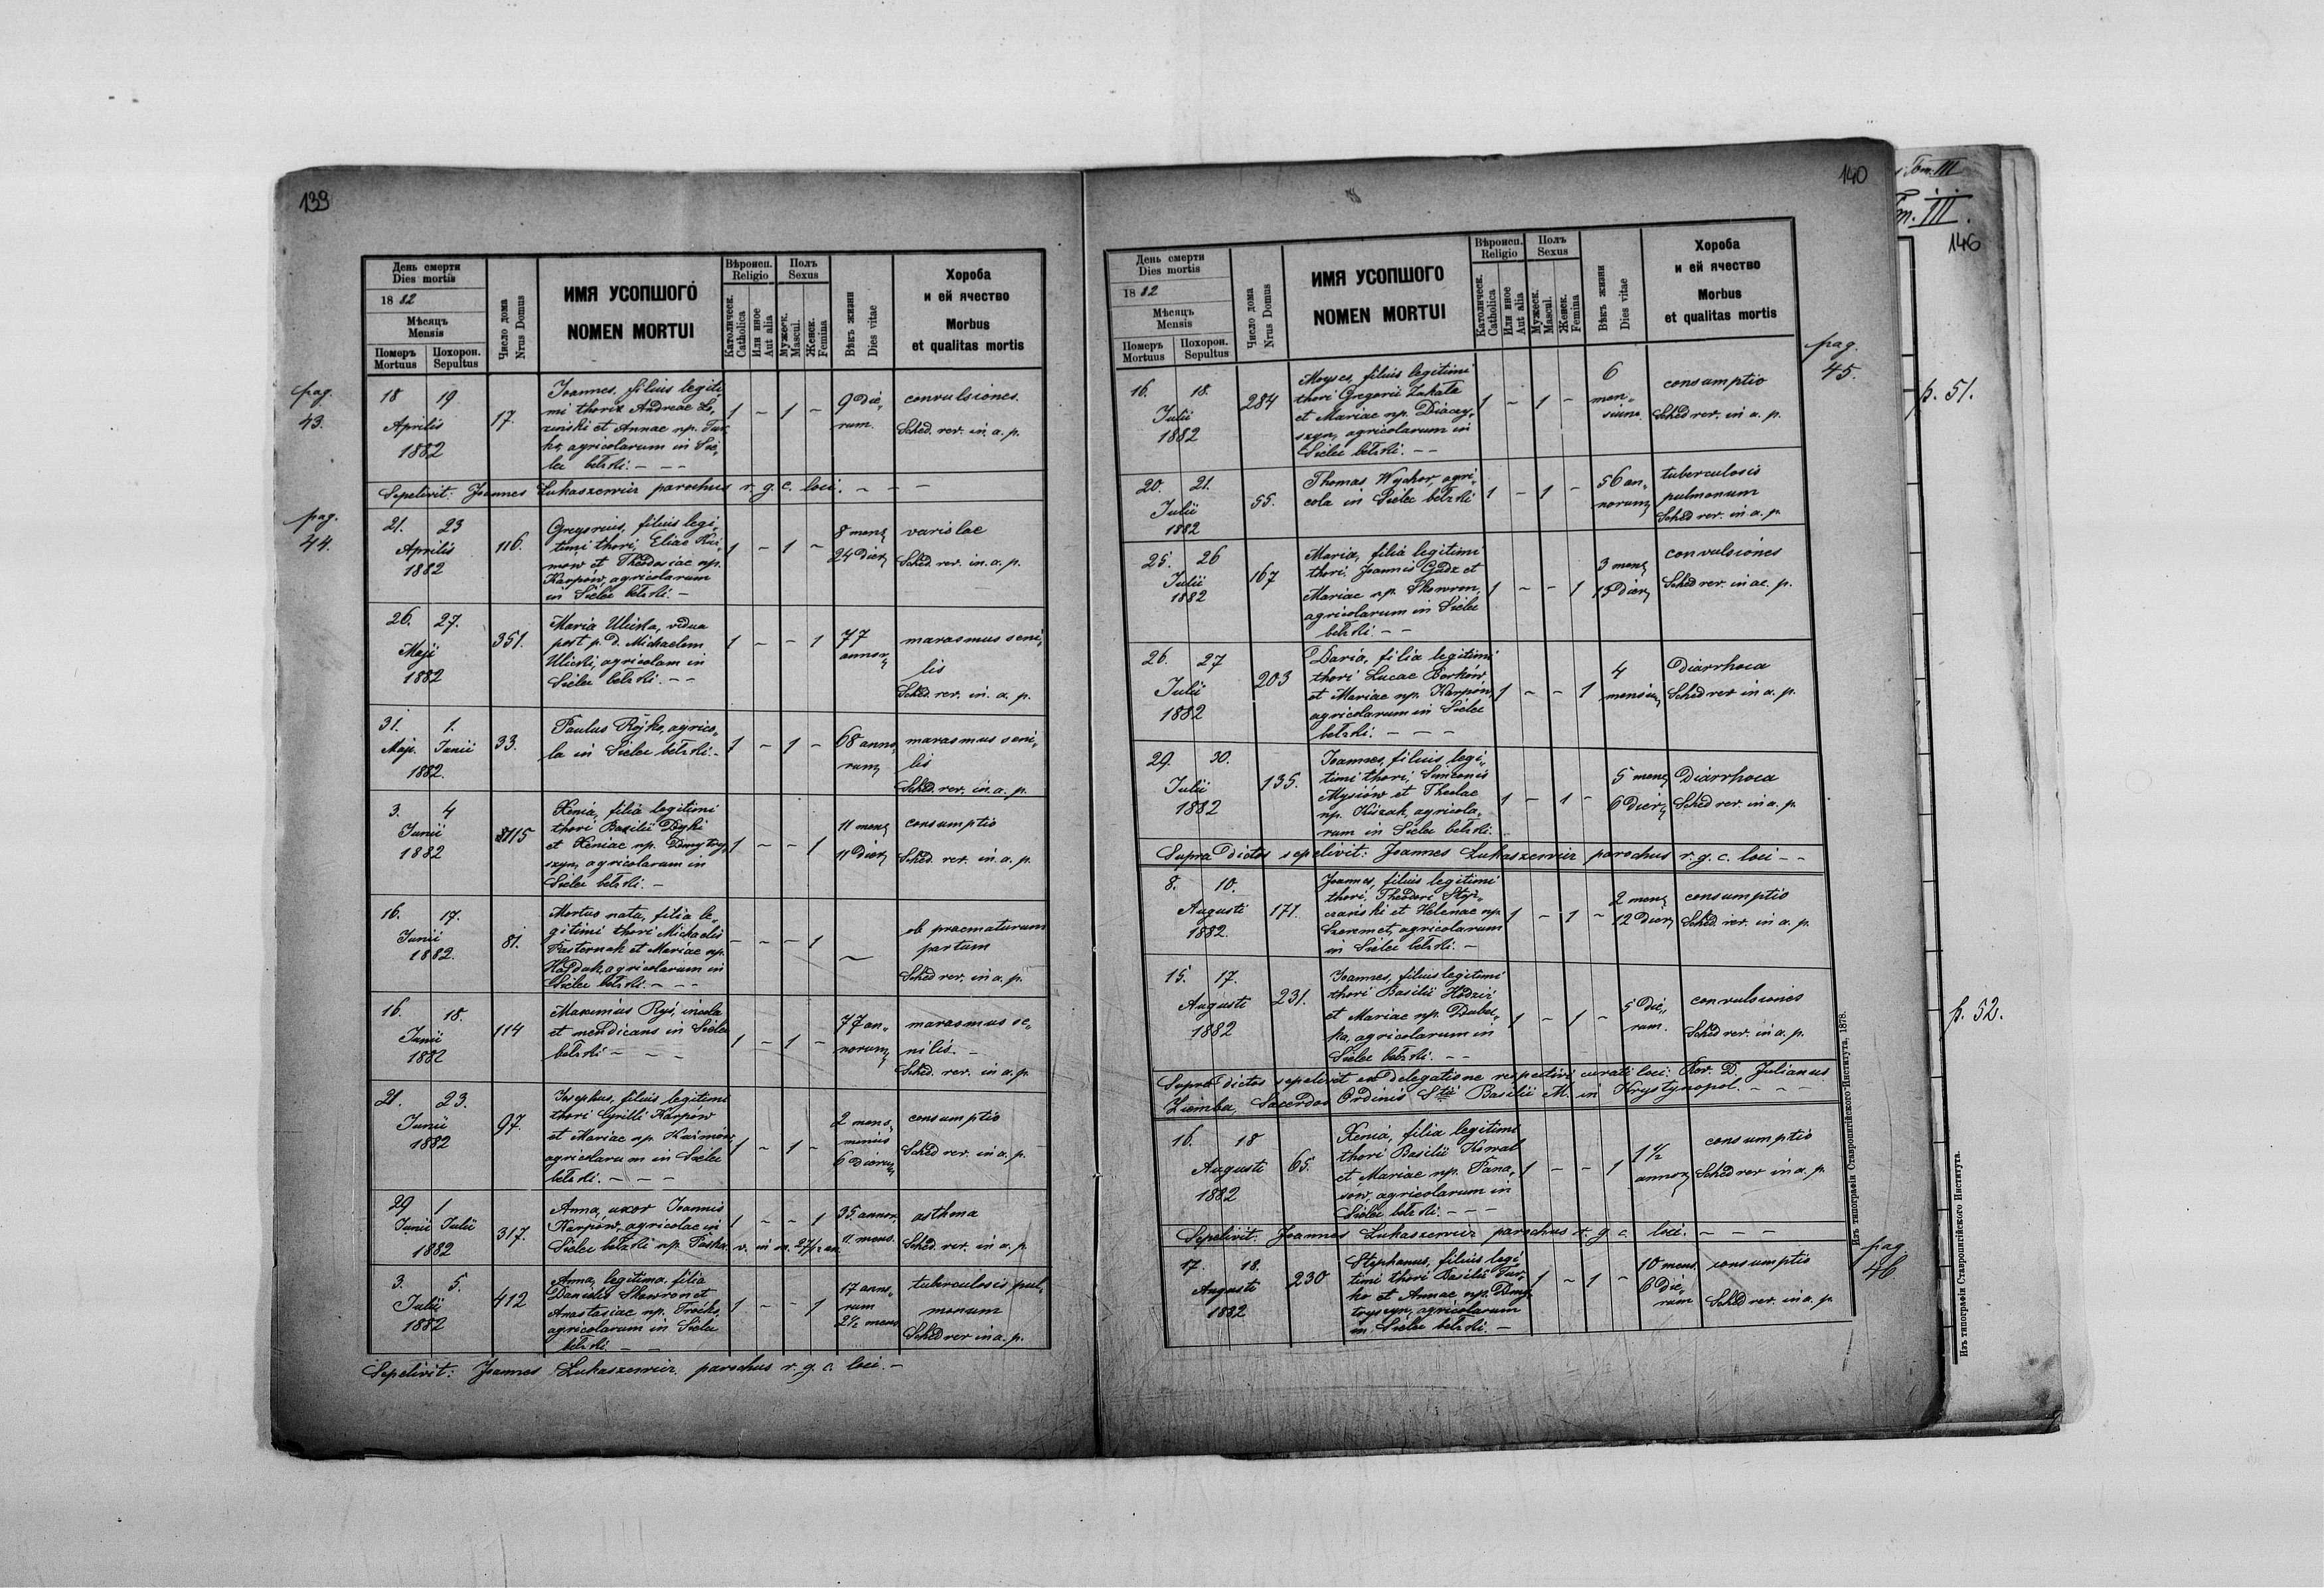 139
День смерти
Dies mortis
1882
Мѣсяцъ
Mensis
Померъ
Mortuus
Похорон.
Sepultus
Число дома
Nrus Domus
ИМЯ УСОПШОГО
NOMEN MORTUI
Вѣроисп.
Religio
Католическ.
Catholica
Или иное
Aut alia
Полъ
Sexus
Мужеск.
Mascul.
Женск.
Femina
Вѣкъ жизни
Dies vitae
Хороба
и ей ячество
Morbus
et qualitas mortis
pag.
43.
18 19
Aprilis
1882
17.
Joannes, filius legiti-
mi thori Andreae
et Annae np. Tur
ko, agricolarum in Sie-
lec bełzki. - - -
1 - 1 -
9 die-
rum.
convulsiones.
Sched. rev. in a. p.
Sepelivit: Joannes Łukaszewicz parochus r. g. c. loci. - - -
pag.
44.
21. 23
Aprilis
1882
116.
Gregorius, filius legi-
timi thori, Eliae
et Theodosiae np.
Karpów, agricolarum
in Sielec bełzki. -
1 - 1 -
8 mens
24 dier
variolae
Sched. rev. in. a. p.
26. 27.
Maji
1882
351.
Maria Ulicka, vidua
post p. d. Michaelem
Ulicki, agricolam in
Sielec bełzki. - -
1 - - 1
77
annor
marasmus seni-
lis
Sched. rev. in. a. p.
31. 1.
Maji. Junii
1882.
33.
Paulus Rójko, agrico-
la in Sielec bełzki. -
1 - 1 -
68 anno-
rum
marasmus seni-
lis
Sched. rev. in. a. p.
3. 4
Junii
1882
115
Xenia, filia legitimi
thori Basilii Dyki
et Xeniae np. Dmytry-
szyn, agricolarum in
Sielec bełzki. -
1 - - 1
11 mens
11 dier
consumptio
Sched. rev. in a. p.
16. 17.
Junii
1882.
81.
Mortuo nata, filia le-
gitimi thori Michaelis
Pasternak et Mariae np.
Hajduk, agricolarum in
Sielec bełzki. - - -
- - - 1
-
ob praematurum
partum
Sched rev. in a. p.
16. 18.
Junii
1882
114
Maximus Ryś, incola
et mendicans in Sielec
bełzki - - -
1 - 1 -
77 an-
norum
marasmus se-
nilis. -
Sched. rev. in a. p.
21. 23.
Junii
1882
97.
Josephus, filius legitimi
thori Cyrilli Karpów
et Mariae np. Kuźmów
agricolarum in Sielec
bełzki. - - -
1 - 1 -
2 mens.
minus
6 dierum
consumptio
Sched rev. in a. p.
29 1
Junii Julii
1882
317.
Anna, uxor Joannis
Karpów, agricolae in
Sielec bełzki np.
1 - - 1
35. annor.
11 mens.
asthma
Sched. rev. in a. p.
3. 5.
Julii
1882
412
Anna, legitima filia
Danielis Skowron et
Anastasiae np.
agricolarum in Sielec
bełzki. - -
1 - - 1
17 anno-
rum
2½ mens
tuberculosis pul-
monum
Sched rev in a. p.
Sepelivit: Joannes Łukaszewicz parochus r. g. c. loci. -
140
День смерти
Dies mortis
1882
Мѣсяцъ
Mensis
Померъ
Mortuus
Похорон.
Sepultus
Число дома
Nrus Domus
ИМЯ УСОПШОГО
NOMEN MORTUI
Вѣроисп.
Religio
Католическ.
Catholica
Или иное
Aut alia
Полъ
Sexus
Мужеск.
Mascul.
Женск.
Femina
Вѣкъ жизни
Dies vitae
Хороба
и ей ячество
Morbus
et qualitas mortis
pag.
45.
16. 18.
Julii
1882
284
Moyses, filius legitimi
thori Gregorii
et Mariae np. Diaczy-
szyn, agricolarum in
Sielec bełzki. - -
1 - 1 -
6
men-
sium
consumptio
Sched rev. in a. p.
20. 21.
Julii
1882
55.
Thomas Wychor, agri-
cola in Sielec bełzki
1 - 1 -
56 an-
norum
tuberculosis
pulmonum
Sched rev. in a. p.
25. 26
Julii
1882
167
Maria, filia legitimi
thori, Joannis et
Mariae np. Skowron,
agricolarum in Sielec
bełzki. - -
1 - - 1
3 mens
13 dier
convulsiones
Sched rev. in ac. p.
26. 27
Julii
1882
203
Daria, filia legitimi
thori Lucae Borków
et Mariae np. Karpów,
agricolarum in Sielec
bełzki. - - -
1 - - 1
4
mensium
Diarrhoea
Sched rev in a. p.
29. 30.
Julii
1882
135.
Joannes, filius legi-
timi thori, Simeonis
Mysiów et Theclae
np. Kiszak, agricola-
rum in Sielec bełzki.
1 - 1 -
5 mens
6 dier
Diarrhoea
Sched rev. in a. p.
Supra dictos sepelivit: Joannes Łukaszewicz parochus r. g. c. loci - -
8. 10.
Augusti
1882.
171.
Joannes, filius legitimi
thori, Theodori
et Helenae np
Szeremet, agricolarum
in Sielec bełzki. -
1 - 1 -
2 mens
12 dier
consumptio
Sched. rev. in a. p.
15. 17.
Augusti
1882
231.
Joannes, filius legitimi
thori Basilii
et Mariae np.
agricolarum in
Sielec bełzki. - -
1 - 1 -
5 die-
rum.
convulsiones
Sched rev. in a. p.
Supra dictos sepelivit ex delegatione respectivi curati loci: D. Julianus
Ziemba, Sacerdos Ordinis Stii Basilii M. in Krystynopol. - - -
16. 18
Augusti
1882
65.
Xenia, filia legitimi
thori Basilii Kowal
et Mariae np. Pana-
sów, agricolarum in
Sielec bełzki. - - -
1 - - 1
1½
annor
consumptio
Sched rev in a. p.
Sepelivit: Joannes Łukaszewicz parochus r. g. c. loci. - - -
pag
46
17. 18.
Augusti
1882
230
Stephanus, filius legi-
timi thori Basilii Tur-
ko et Annae np. Dmy-
tryszyn, agricolarum
in Sielec bełzki. -
1 - 1 -
10 mens.
6 die-
rum
consumptio
Sched rev. in a. p.
Изъ типографіи Ставропигійского Института, 1878.
Tom. III
Tm. III.
146
p. 51.
p. 52.
Изъ типографіи Ставропигійского Института.